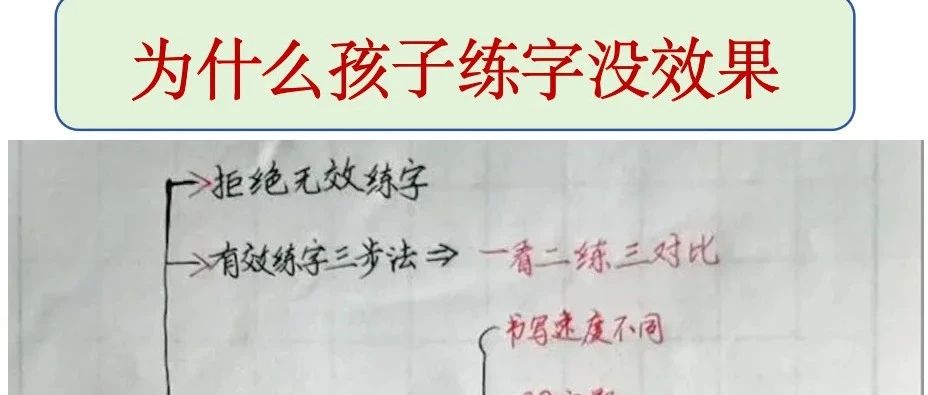 为什么孩子练字没效果
拒绝无效练字
有效练字三步法⇒ 一看二练三对比
书写速度不同